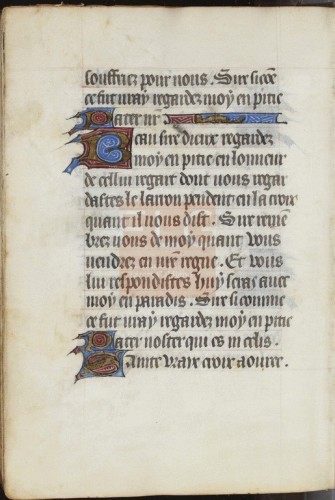 souffriez pour nous. Sire si cõe
ce fut vray regardez moy en pitie
Pater nr̃
Beau sire dieux regardez
moy en pitie en lonneur
de cellui regart dont vous regar
dastes le larron pendent en la croix
quant il vous dist. Sire remem
brez vous de moy quant vous
vendrez en vr̃e regne. Et vous
lui respondistes huy seras avec
moy en paradis. Sire si comme
ce fut vray regardez moy en pitie
Pater noster qui es in celis.
Sainte vraie croix aouree.